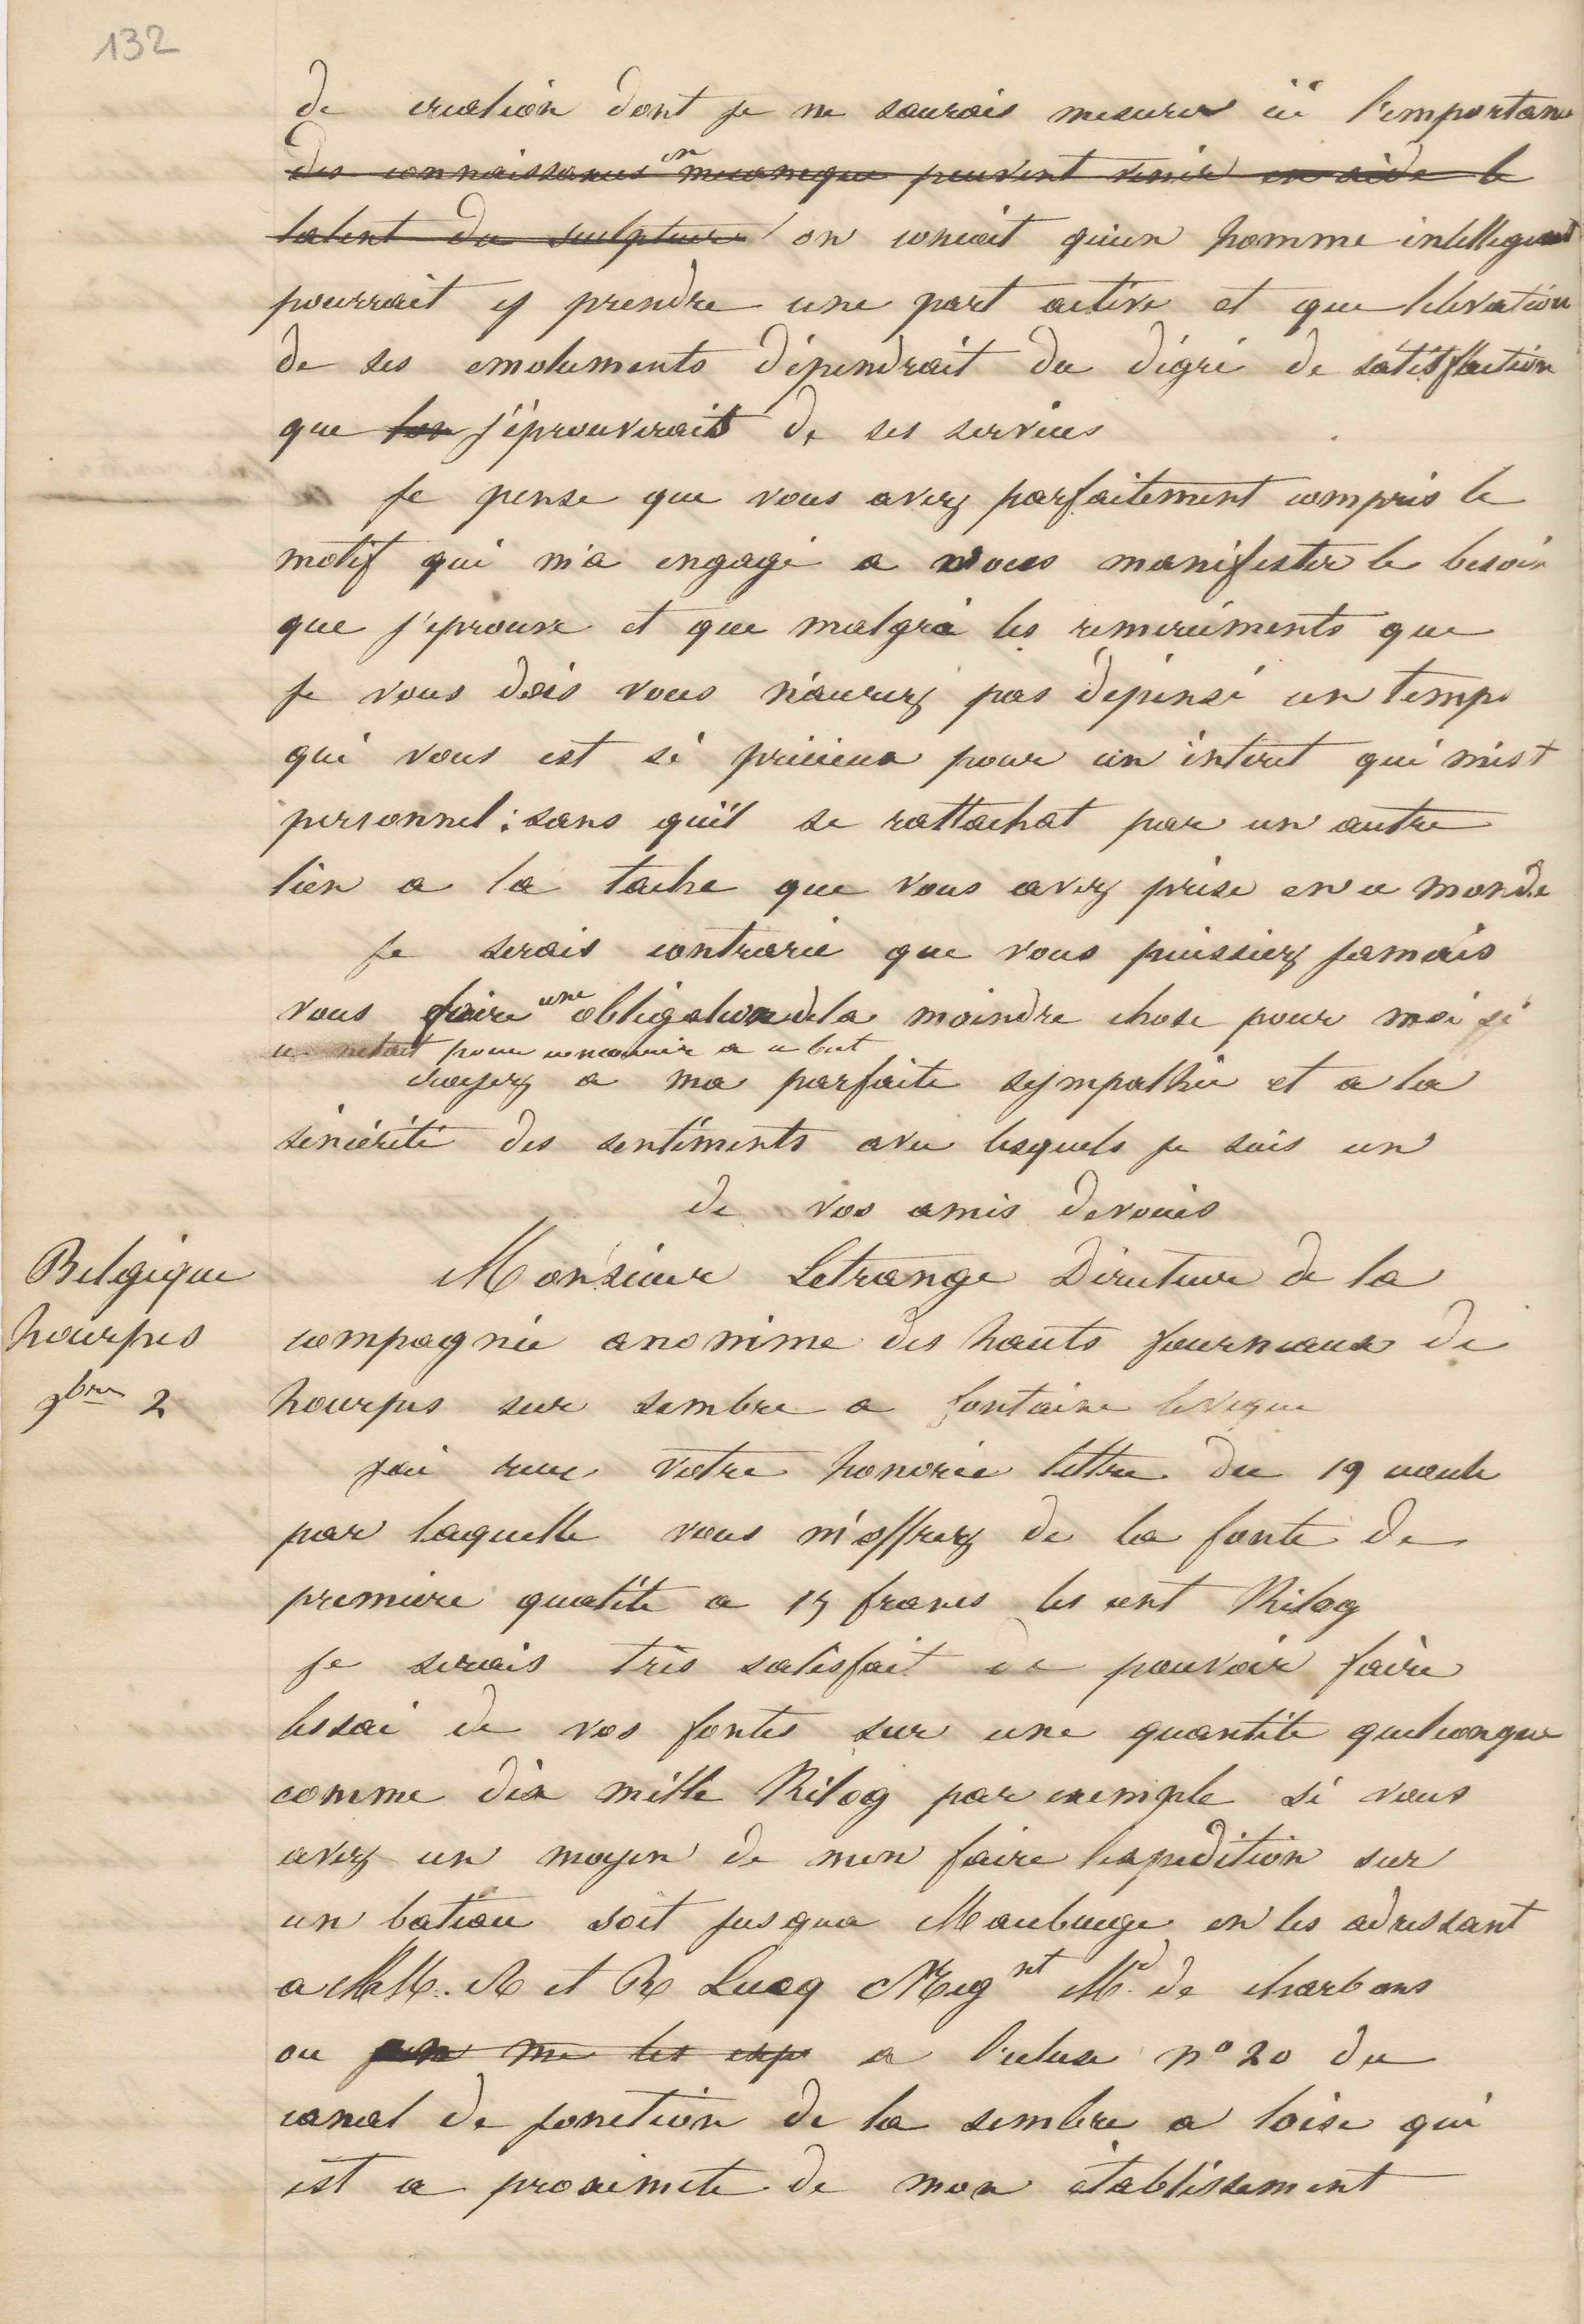 132
de création dont je ne saurais mesurer ici l'importance
des connaissances en mecanique peuvent venir en aide le
talent du sculpteur on concoit qu'un homme intelligent
pourrait y prendre une part active et que lelevation
de ses emoluments dépendrait du dégré de satisffaction
que lon j'éprouverais de ses services
je pense que vous avez parfaitement compris le
motif qui m'a engagé a vous manifester le besoin
que j'eprouve et que malgré les remerciments que
je vous dois vous n'aurez pas dépensé un temps
qui vous est si précieux pour un interet qui m'est
personnel : sans qu'il se rattachat par un autre
lien a la tache que vous avez prise en ce monde
je serais contrarié que vous puissiez jamais
vous faire une obligation de la moindre chose pour moi si
ce netait pour concourir a ce but
croyez a ma parfaite sympathie et a la
sincérité des sentiments avec lesquels je suis un
de vos amis devoués
Belgique
hourpes
9bre 2
Monsieur Letrange Directeur de la
compagnie anonime des hauts fourneaux de
hourpes sur sambre a fontaine leveque
jai recu votre honorée lettre du 19 ecoule
par laquelle vous m'offrez de la fonte de
premiere qualité a 15 francs les cent Kilog
je serais très satisfait de pouvoir faire
lessai de vos fontes sur une quantité quelconque
comme dix mille Kilog par exemple si vous
avez un moyen de men faire lexpedition sur
un bateau soit jusqua Maubeuge en les adressant
a MM. R et R Lucq Negnt Md de charbons
ou me les exp a l'ecluse n° 20 du
canal de jonction de la sambre a loise qui
est a proximete de mon établissement